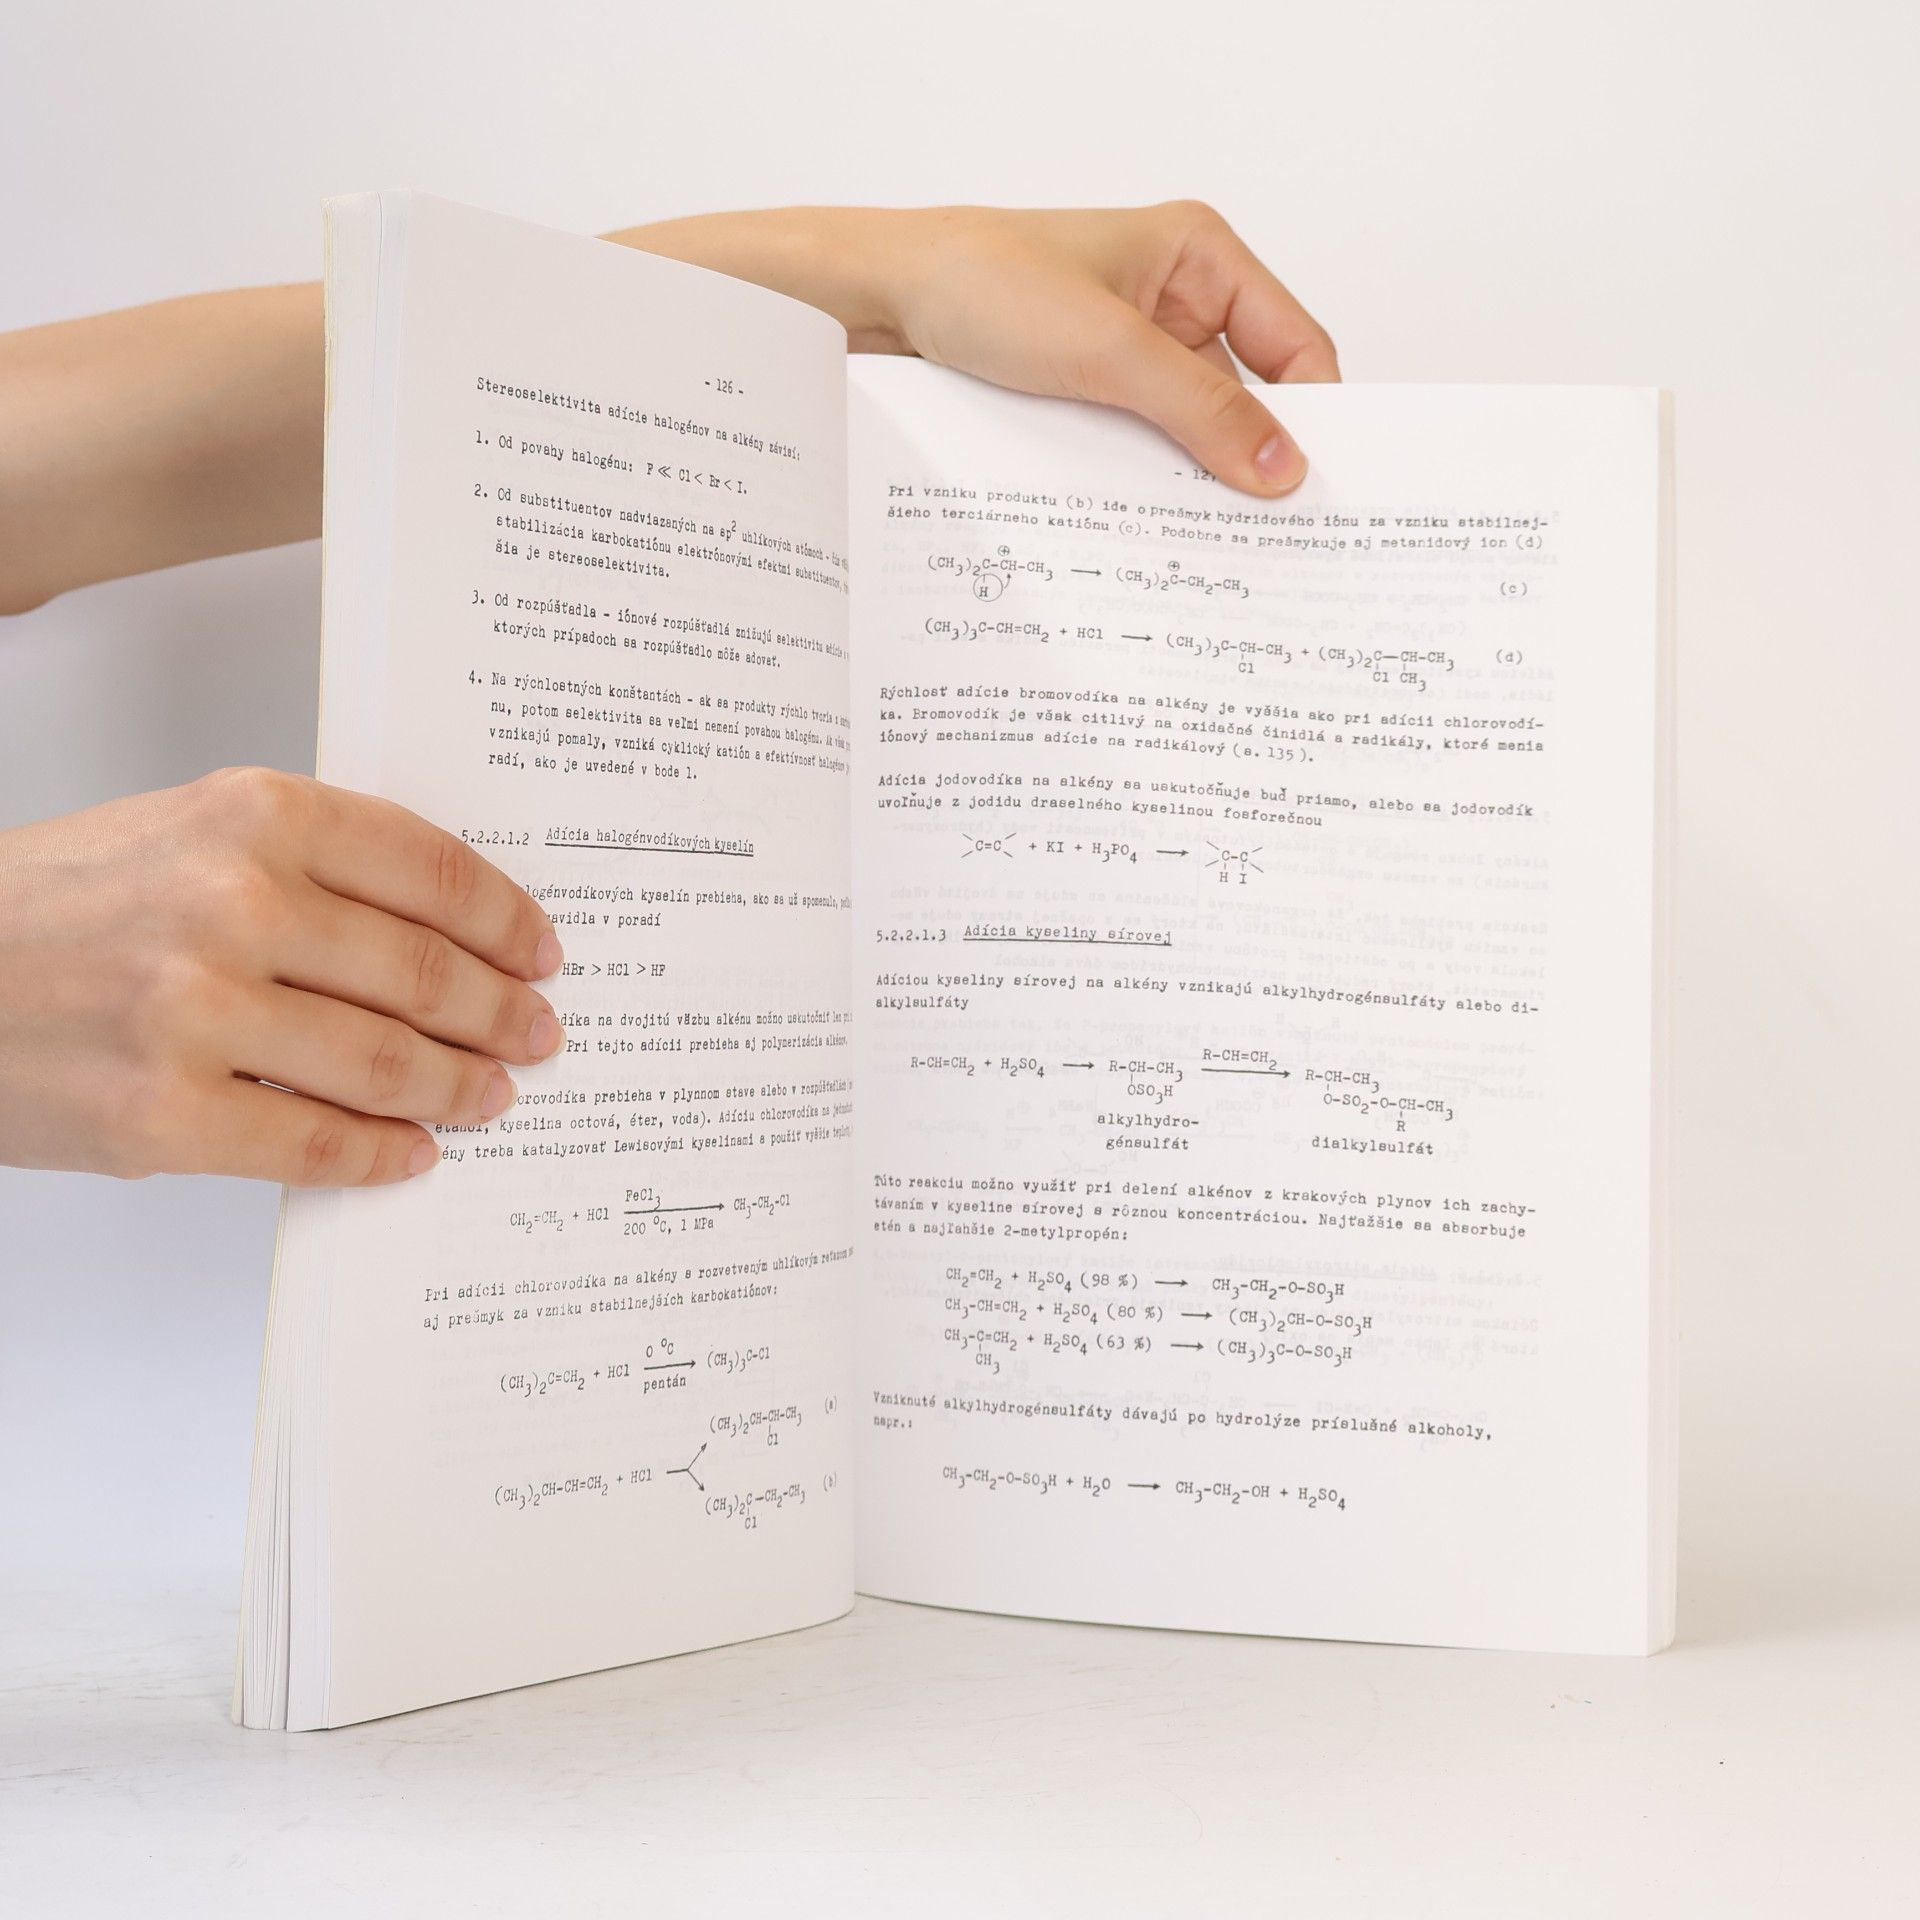 - 126 -
Stereoselektivita adície halogénov na alkény závisí:
1. Od povahy halogénu: F ≪ Cl < Br < I.
2. Od substituentov nadviazaných na sp2 uhlíkových atómoch - čím
stabilizácia karbokatiónu elektrónovými efektmi substituentov,
šia je stereoselektivita.
3. Od rozpúšťadla - iónové rozpúšťadlá znižujú selektivitu adície
ktorých prípadoch sa rozpúšťadlo môže adovať.
4. Na rýchlostných konštantách - ak sa produkty rýchlo tvoria
nu, potom selektivita sa veľmi nemení povahou halogénu. Ak
vznikajú pomaly, vzniká cyklický katión a efektívnosť halogénov
radí, ako je uvedené v bode 1.
5.2.2.1.2 Adícia halogénvodíkových kyselín
logénvodíkových kyselín prebieha, ako sa už spomenulo,
avidla v poradí
HBr > HCl > HF
díka na dvojitú väzbu alkénu možno uskutočniť len
Pri tejto adícii prebieha aj polymerizácia alkénov.
orovodíka prebieha v plynnom stave alebo v rozpúšťadlách
etanol, kyselina octová, éter, voda). Adíciu chlorovodíka na
ény treba katalyzovať Lewisovými kyselinami a použiť vyššie
FeCl3
CH2=CH2 + HCl ⟶ CH3-CH2-Cl
200 °C, 1 MPa
Pri adícii chlorovodíka na alkény s rozvetveným uhlíkovým reťazcom
aj prešmyk za vzniku stabilnejších karbokatiónov:
0 °C
(CH3)2C=CH2 + HCl ⟶ (CH3)3C-Cl
pentán
(CH3)2CH-CH-CH3 (a)
Cl
(CH3)2CH-CH=CH2 + HCl
(CH3)2C-CH2-CH3 (b)
Cl
- 12
Pri vzniku produktu (b) ide o prešmyk hydridového iónu za vzniku stabilnej-
šieho terciárneho katiónu (c). Podobne sa prešmykuje aj metanidový ion (d)
⊕ ⊕
(CH3)2C-CH-CH3 ⟶ (CH3)2C-CH2-CH3 (c)
H
(CH3)3C-CH=CH2 + HCl ⟶ (CH3)3C-CH-CH3 + (CH3)2C—CH-CH3 (d)
Cl Cl CH3
Rýchlosť adície bromovodíka na alkény je vyššia ako pri adícii chlorovodí-
ka. Bromovodík je však citlivý na oxidačné činidlá a radikály, ktoré menia
iónový mechanizmus adície na radikálový (s. 135).
Adícia jodovodíka na alkény sa uskutočňuje buď priamo, alebo sa jodovodík
uvoľňuje z jodidu draselného kyselinou fosforečnou
C=C + KI + H3PO4 ⟶ C-C
H I
5.2.2.1.3 Adícia kyseliny sírovej
Adíciou kyseliny sírovej na alkény vznikajú alkylhydrogénsulfáty alebo di-
alkylsulfáty
R-CH=CH2 + H2SO4 ⟶ R-CH-CH3 R-CH=CH2 ⟶ R-CH-CH3
OSO3H O-SO2-O-CH-CH3
R
alkylhydro-
génsulfát dialkylsulfát
Túto reakciu možno využiť pri delení alkénov z krakových plynov ich zachy-
távaním v kyseline sírovej s rôznou koncentráciou. Najťažšie sa absorbuje
etén a najľahšie 2-metylpropén:
CH2=CH2 + H2SO4 (98 %) ⟶ CH3-CH2-O-SO3H
CH3-CH=CH2 + H2SO4 (80 %) ⟶ (CH3)2CH-O-SO3H
CH3-C=CH2 + H2SO4 (63 %) ⟶ (CH3)3C-O-SO3H
CH3
Vzniknuté alkylhydrogénsulfáty dávajú po hydrolýze príslušné alkoholy,
napr.:
CH3-CH2-O-SO3H + H2O ⟶ CH3-CH2-OH + H2SO4